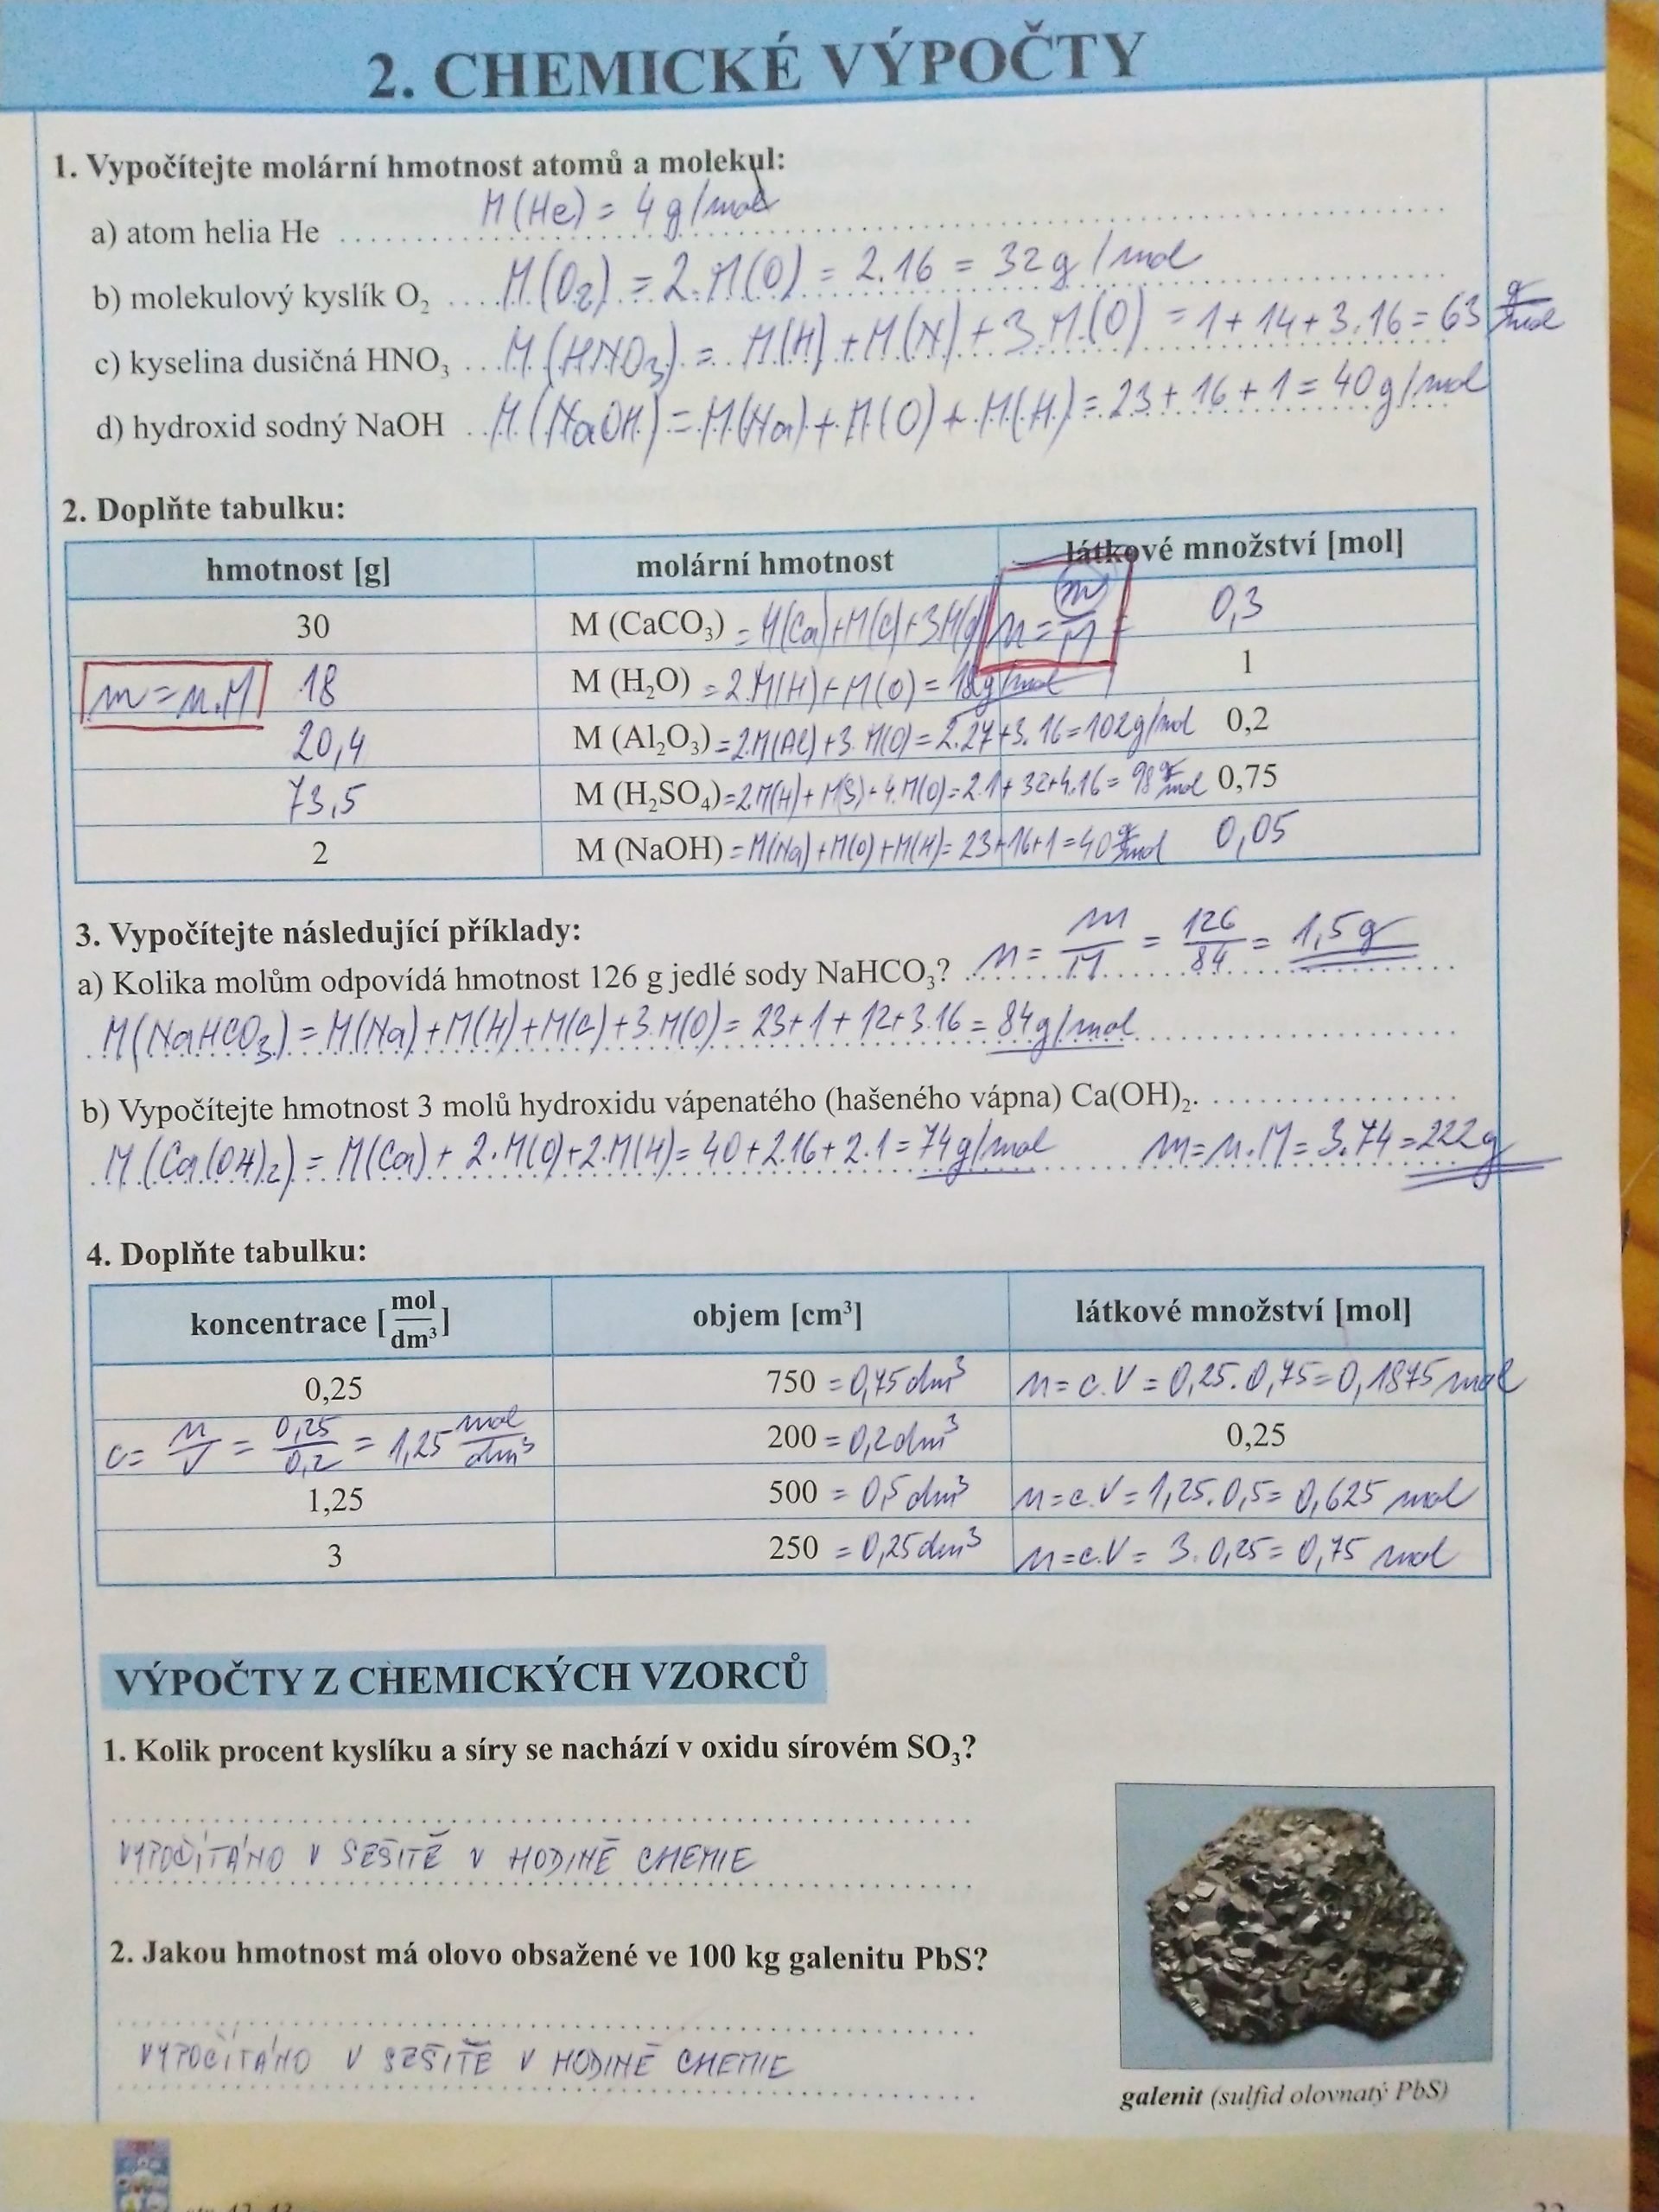 2. CHEMICKÉ VÝPOČTY
1. Vypočítejte molární hmotnost atomů a molekul:
a) atom helia He M(He) = 4 g/mol
b) molekulový kyslík O₂ M(O₂) = 2.M(O) = 2.16 = 32 g/mol
c) kyselina dusičná HNO₃ M(HNO₃) = M(H) + M(N) + 3.M(O) = 1 + 14 + 3.16 = 63 g/mol
d) hydroxid sodný NaOH M(NaOH) = M(Na) + M(O) + M(H) = 23 + 16 + 1 = 40 g/mol
2. Doplňte tabulku:
hmotnost [g] molární hmotnost látkové množství [mol]
30 M (CaCO₃) = M(Ca)+M(C)+3M(O) n = m/M = 0,3
m = n.M 18 M (H₂O) = 2.M(H)+M(O) = 18 g/mol 1
20,4 M (Al₂O₃) = 2.M(Al)+3.M(O) = 2.27+3.16 = 102 g/mol 0,2
73,5 M (H₂SO₄) = 2.M(H)+M(S)+4.M(O) = 2.1+32+4.16 = 98 g/mol 0,75
2 M (NaOH) = M(Na)+M(O)+M(H) = 23+16+1 = 40 g/mol 0,05
3. Vypočítejte následující příklady:
a) Kolika molům odpovídá hmotnost 126 g jedlé sody NaHCO₃? n = m/M = 126/84 = 1,5 g
M(NaHCO₃) = M(Na)+M(H)+M(C)+3.M(O) = 23+1+12+3.16 = 84 g/mol
b) Vypočítejte hmotnost 3 molů hydroxidu vápenatého (hašeného vápna) Ca(OH)₂.
M(Ca(OH)₂) = M(Ca) + 2.M(O)+2.M(H) = 40+2.16+2.1 = 74 g/mol m = n.M = 3.74 = 222 g
4. Doplňte tabulku:
koncentrace [mol/dm³] objem [cm³] látkové množství [mol]
0,25 750 = 0,75 dm³ n = c.V = 0,25.0,75 = 0,1875 mol
c = n/V = 0,25/0,2 = 1,25 mol/dm³ 200 = 0,2 dm³ 0,25
1,25 500 = 0,5 dm³ n = c.V = 1,25.0,5 = 0,625 mol
3 250 = 0,25 dm³ n = c.V = 3.0,25 = 0,75 mol
VÝPOČTY Z CHEMICKÝCH VZORCŮ
1. Kolik procent kyslíku a síry se nachází v oxidu sírovém SO₃?
VYPOČÍTÁNO V SEŠITĚ V HODINĚ CHEMIE
2. Jakou hmotnost má olovo obsažené ve 100 kg galenitu PbS?
VYPOČÍTÁNO V SEŠITĚ V HODINĚ CHEMIE
galenit (sulfid olovnatý PbS)